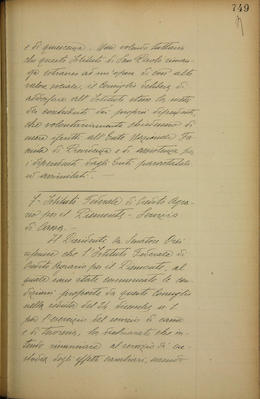 749
e di quiescenza. Non volendo tuttavia
che questo Istituto di San Paolo riman-
ga estraneo ad un'opera di così alto
valore sociale, il Consiglio delibera di
che volontariamente chiederanno di
essere iscritti all'Ente Nazionale Fa-
scista di Previdenza e di assistenza per
i dipendenti dagli Enti parastatali
ed assimilati. —
7- Istituto Federale di Credito Agra-
rio per il Piemonte - Servizio
di Cassa. -
Il Presidente Senatore
che l'Istituto Federale di
Credito Agrario per il Piemonte, al
quale erano state comunicate le con-
dizioni proposte da questo Consiglio
nella seduta del 24
per l'esercizio del servizio di cassa
e di tesoreria, ha dichiarato che in-
tende rinunciare al servizio di cu-
stodia degli effetti cambiari, essendo